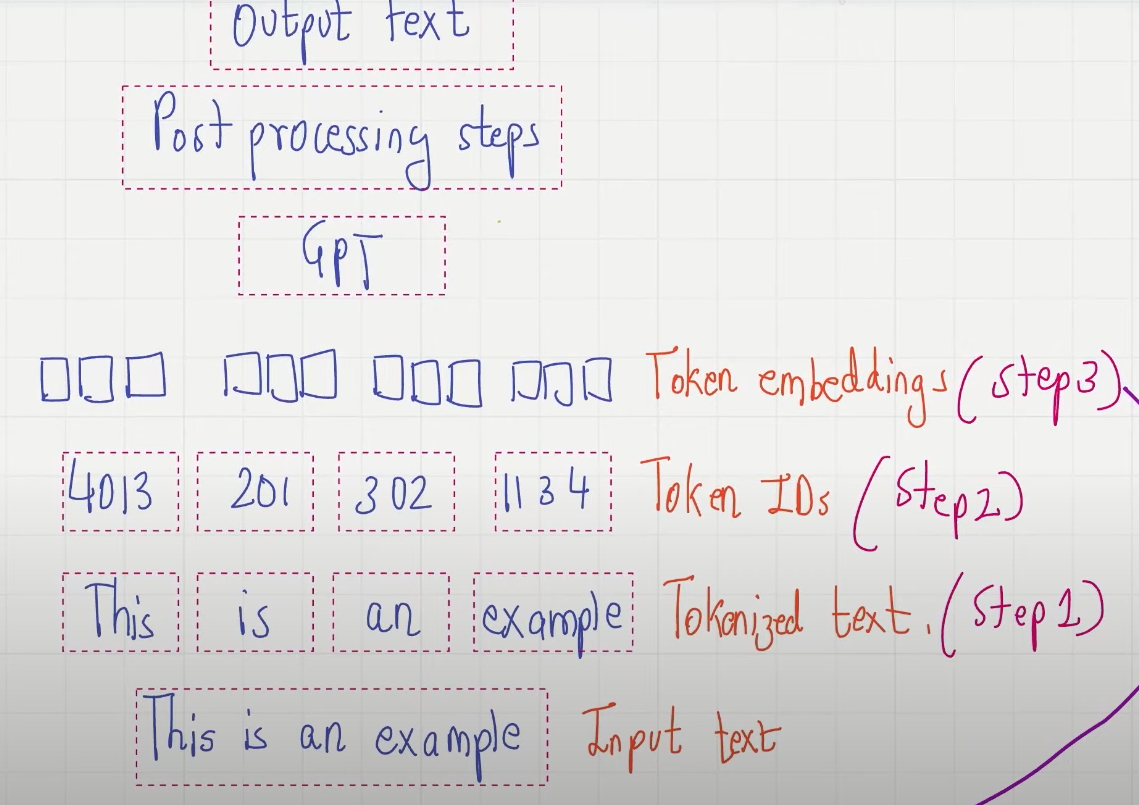 Output text
Post processing steps
GPT
Token embeddings (Step 3)
4013 201 302 1134 Token IDs (Step 2)
This is an example Tokenized text. (Step 1)
This is an example Input text